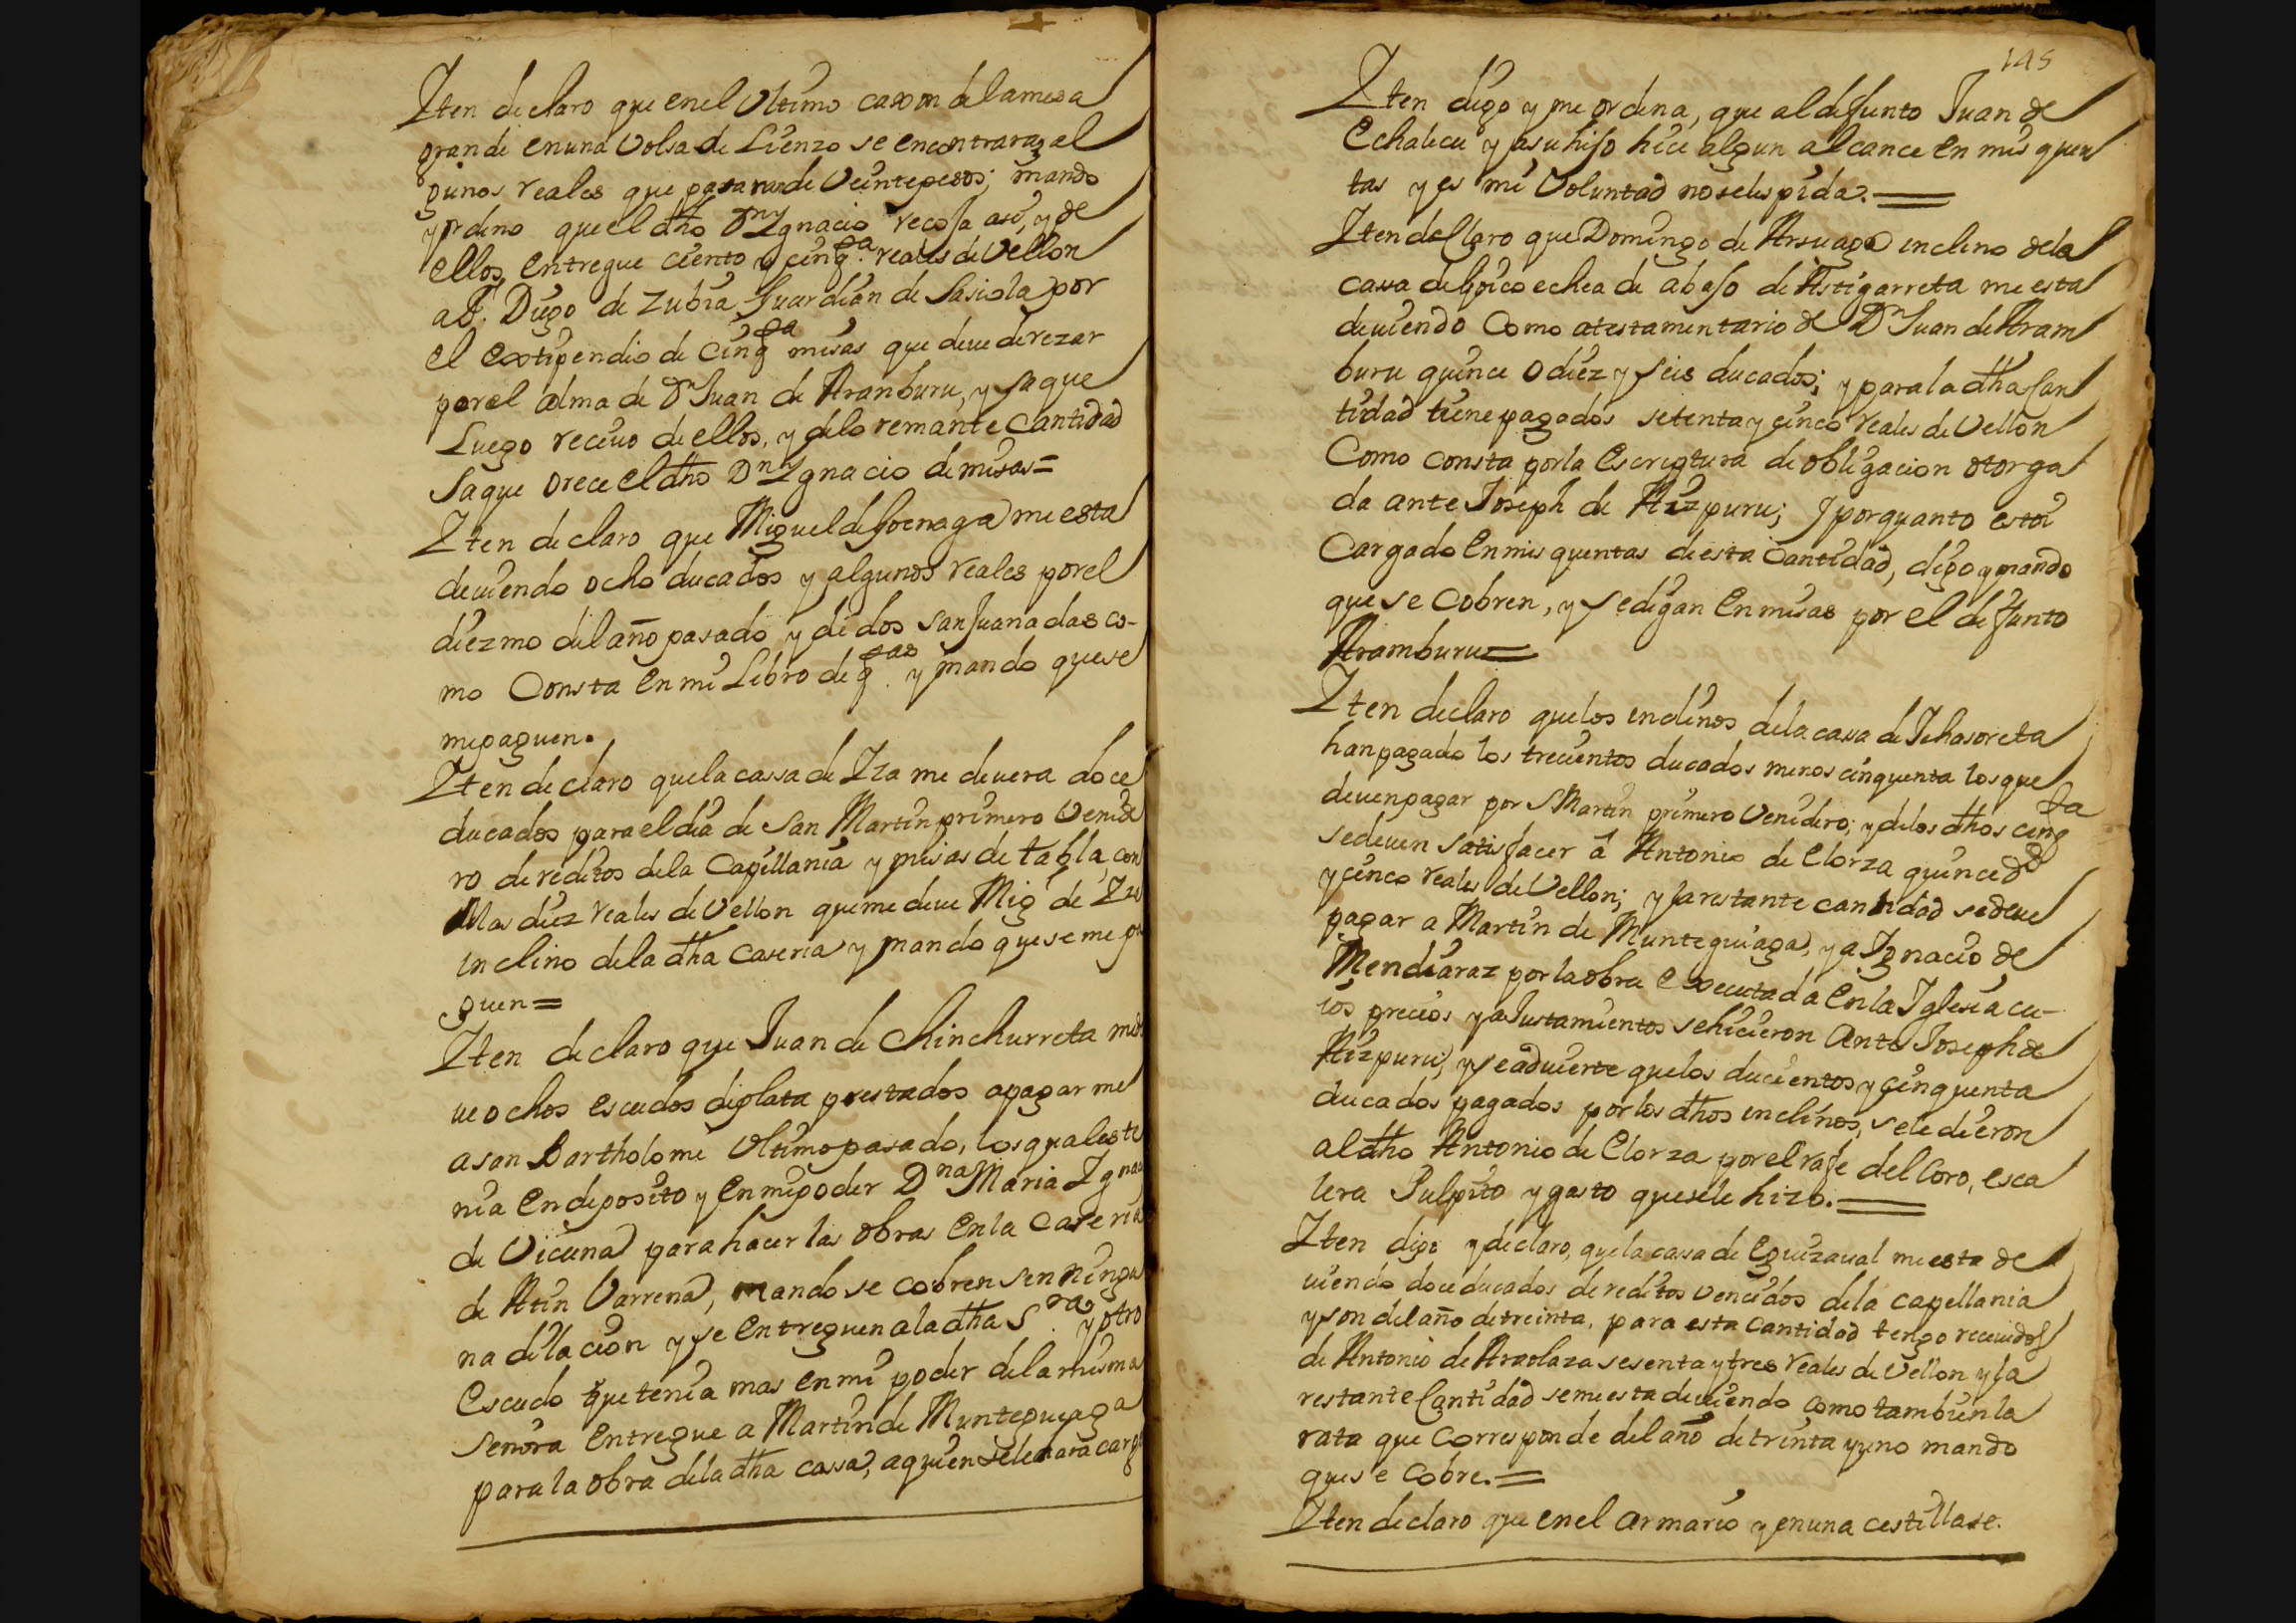 Iten declaro que enel Ultimo caxon de lamesa
grande en una Volsa de Lienzo se encontraran al
gunos reales que pasaran de Veinte pesos; mando
y ordeno que el dho Dn Ygnacio recoja asi, y de
ellos, entregue ciento y cinqta. reales de Vellon
a F. Diego de Zubia Guardian de Sasiola por
el extipendio de Cinqta misas que deve de rezar
por el alma de Dn Juan de Aranburu, y saque
Luego recivo de ellos, y dela remante Cantidad
Saque o rece el dho Dn Ygnacio de misas=
Iten declaro que Miguel de Goenaga me esta
deviendo ocho ducados y algunos reales por el
diezmo del año pasado y de dos San Juanadas co-
mo Consta en mi Libro de qtas. y mando que se
me paguen.
Iten declaro que la cassa de Iza me devera doce
ducados para el dia de San Martin primero Venide
ro de reditos dela Capellania y misas de tabla, con
Mas diez reales de Vellon que me deve Migl de Iza
inclino dela dha caseria y mando que se me pa
guen=
Iten declaro que Juan de Chinchurreta me de
ve ochos escudos de plata prestados a pagar me
a san Bartholome Ultimo pasado, los quales te
nia en deposito y en mi poder Dna Maria Igna
de Vicuna para hacer las obras en la Caseria
de Atin Varrena, mando se cobren sen ninga
na dilacion y se entreguen a la dha Sra. y otro
Escudo que tenia mas en mi poder de la misma
Senora entregue a Martin de Munteguiaga
para la obra dela dha cassa, a quien se le hara cargo
145
Iten digo y me ordena, que al defunto Juan de
Echalecu y a su hijo hice algun alcance en mis quen
tas y es mi Voluntad no se les pida.=
Iten declaro que Domingo de Arsuaga inclino dela
cassa de Goicoechea de abajo de Astigarreta me esta
deviendo Como atestamentario de Dn Juan de Aram
buru quince o diez y seis ducados; y para la dha can
tidad tiene pagados setenta y cinco reales de Vellon
Como consta por la Escriptura de obligacion otorga
da ante Joseph de Aizpuru; y por quanto estoi
Cargado en mis quentas de esta Cantidad, digo y mando
que se Cobren, y se digan en misas por el defunto
Aramburu=
Iten declaro que los inclinos de la cassa de Ichasoreta
han pagado los trecientos ducados menos cinquenta los que
deven pagar por S Martin primero Venidero; y de los dhos cinqta
se deven satisfacer á Antonio de Elorza quince ds
y cinco reales de Vellon; y la restante cantidad se deve
pagar a Martin de Munteguiaga, y a Ignacio de
Mendiaraz por la obra executada en la Iglesia cu-
ios precios y ajustamientos se hicieron ante Joseph de
Aizpuru, y se advierte que los ducientos y cinquenta
ducados pagados por los dhos inclinos, se le dieron
al dho Antonio de Elorza por el raje del Coro, esca
lera Pulpito y gasto que se le hizo.=
Iten digo y declaro, que la cassa de Eguizaval me esta de
viendo doce ducados de reditos vencidos de la capellania
y son del año de treinta, para esta cantidad tengo recividos
de Antonio de Araolaza sesenta y tres reales de Vellon y la
restante Cantidad se me esta deviendo como tambien la
rata que corresponde del año de trinta y uno mando
que se Cobre.=
Iten declaro que en el armario y en una cestilla se.